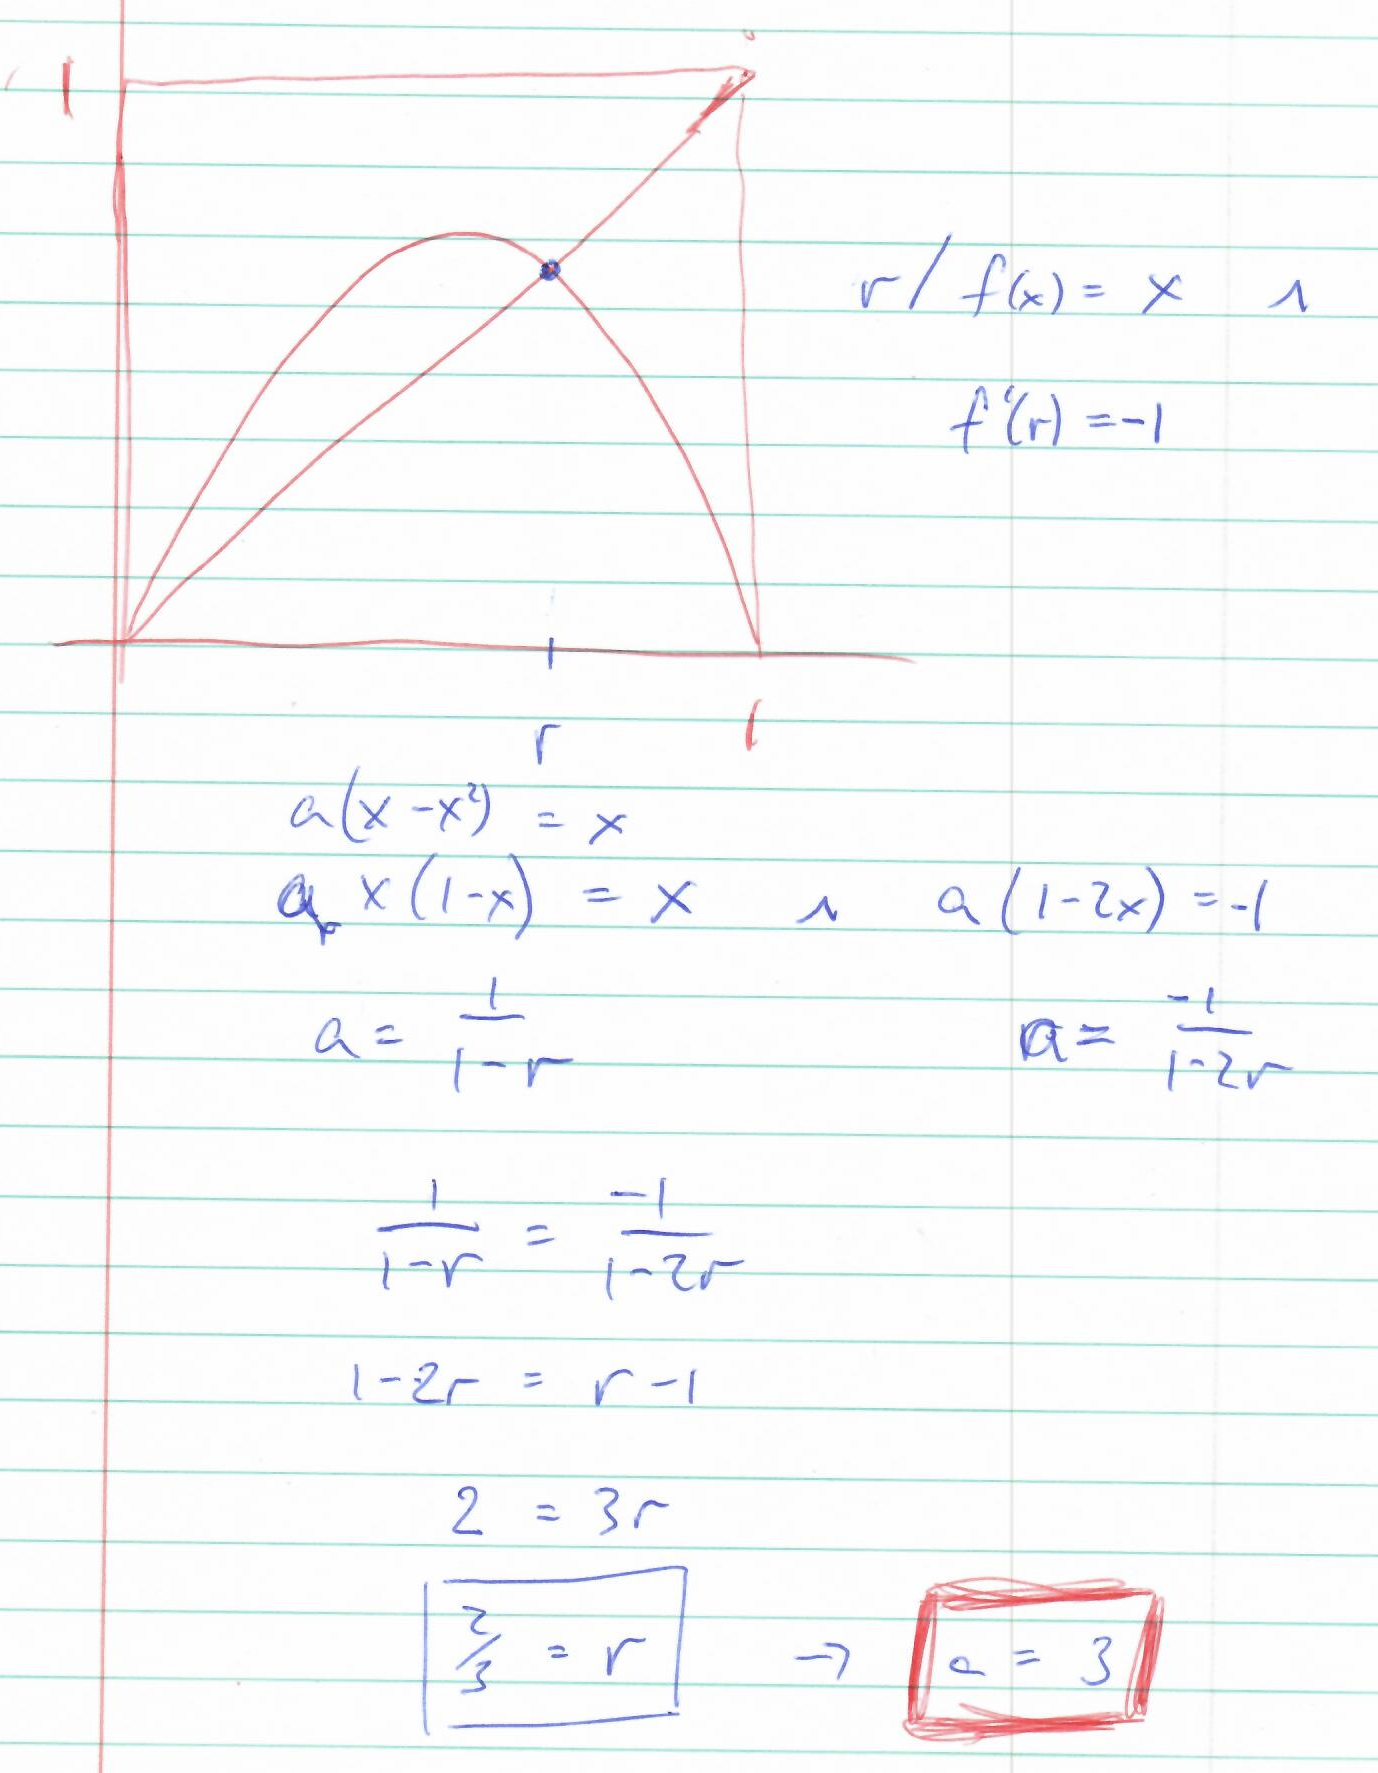 1
r / f(x) = x ∧
f'(r) = -1
r 1
a(x - x²) = x
a x(1-x) = x ∧ a(1-2x) = -1
a = 1/(1-r) a = -1/(1-2r)
1/(1-r) = -1/(1-2r)
1-2r = r-1
2 = 3r
2/3 = r → a = 3